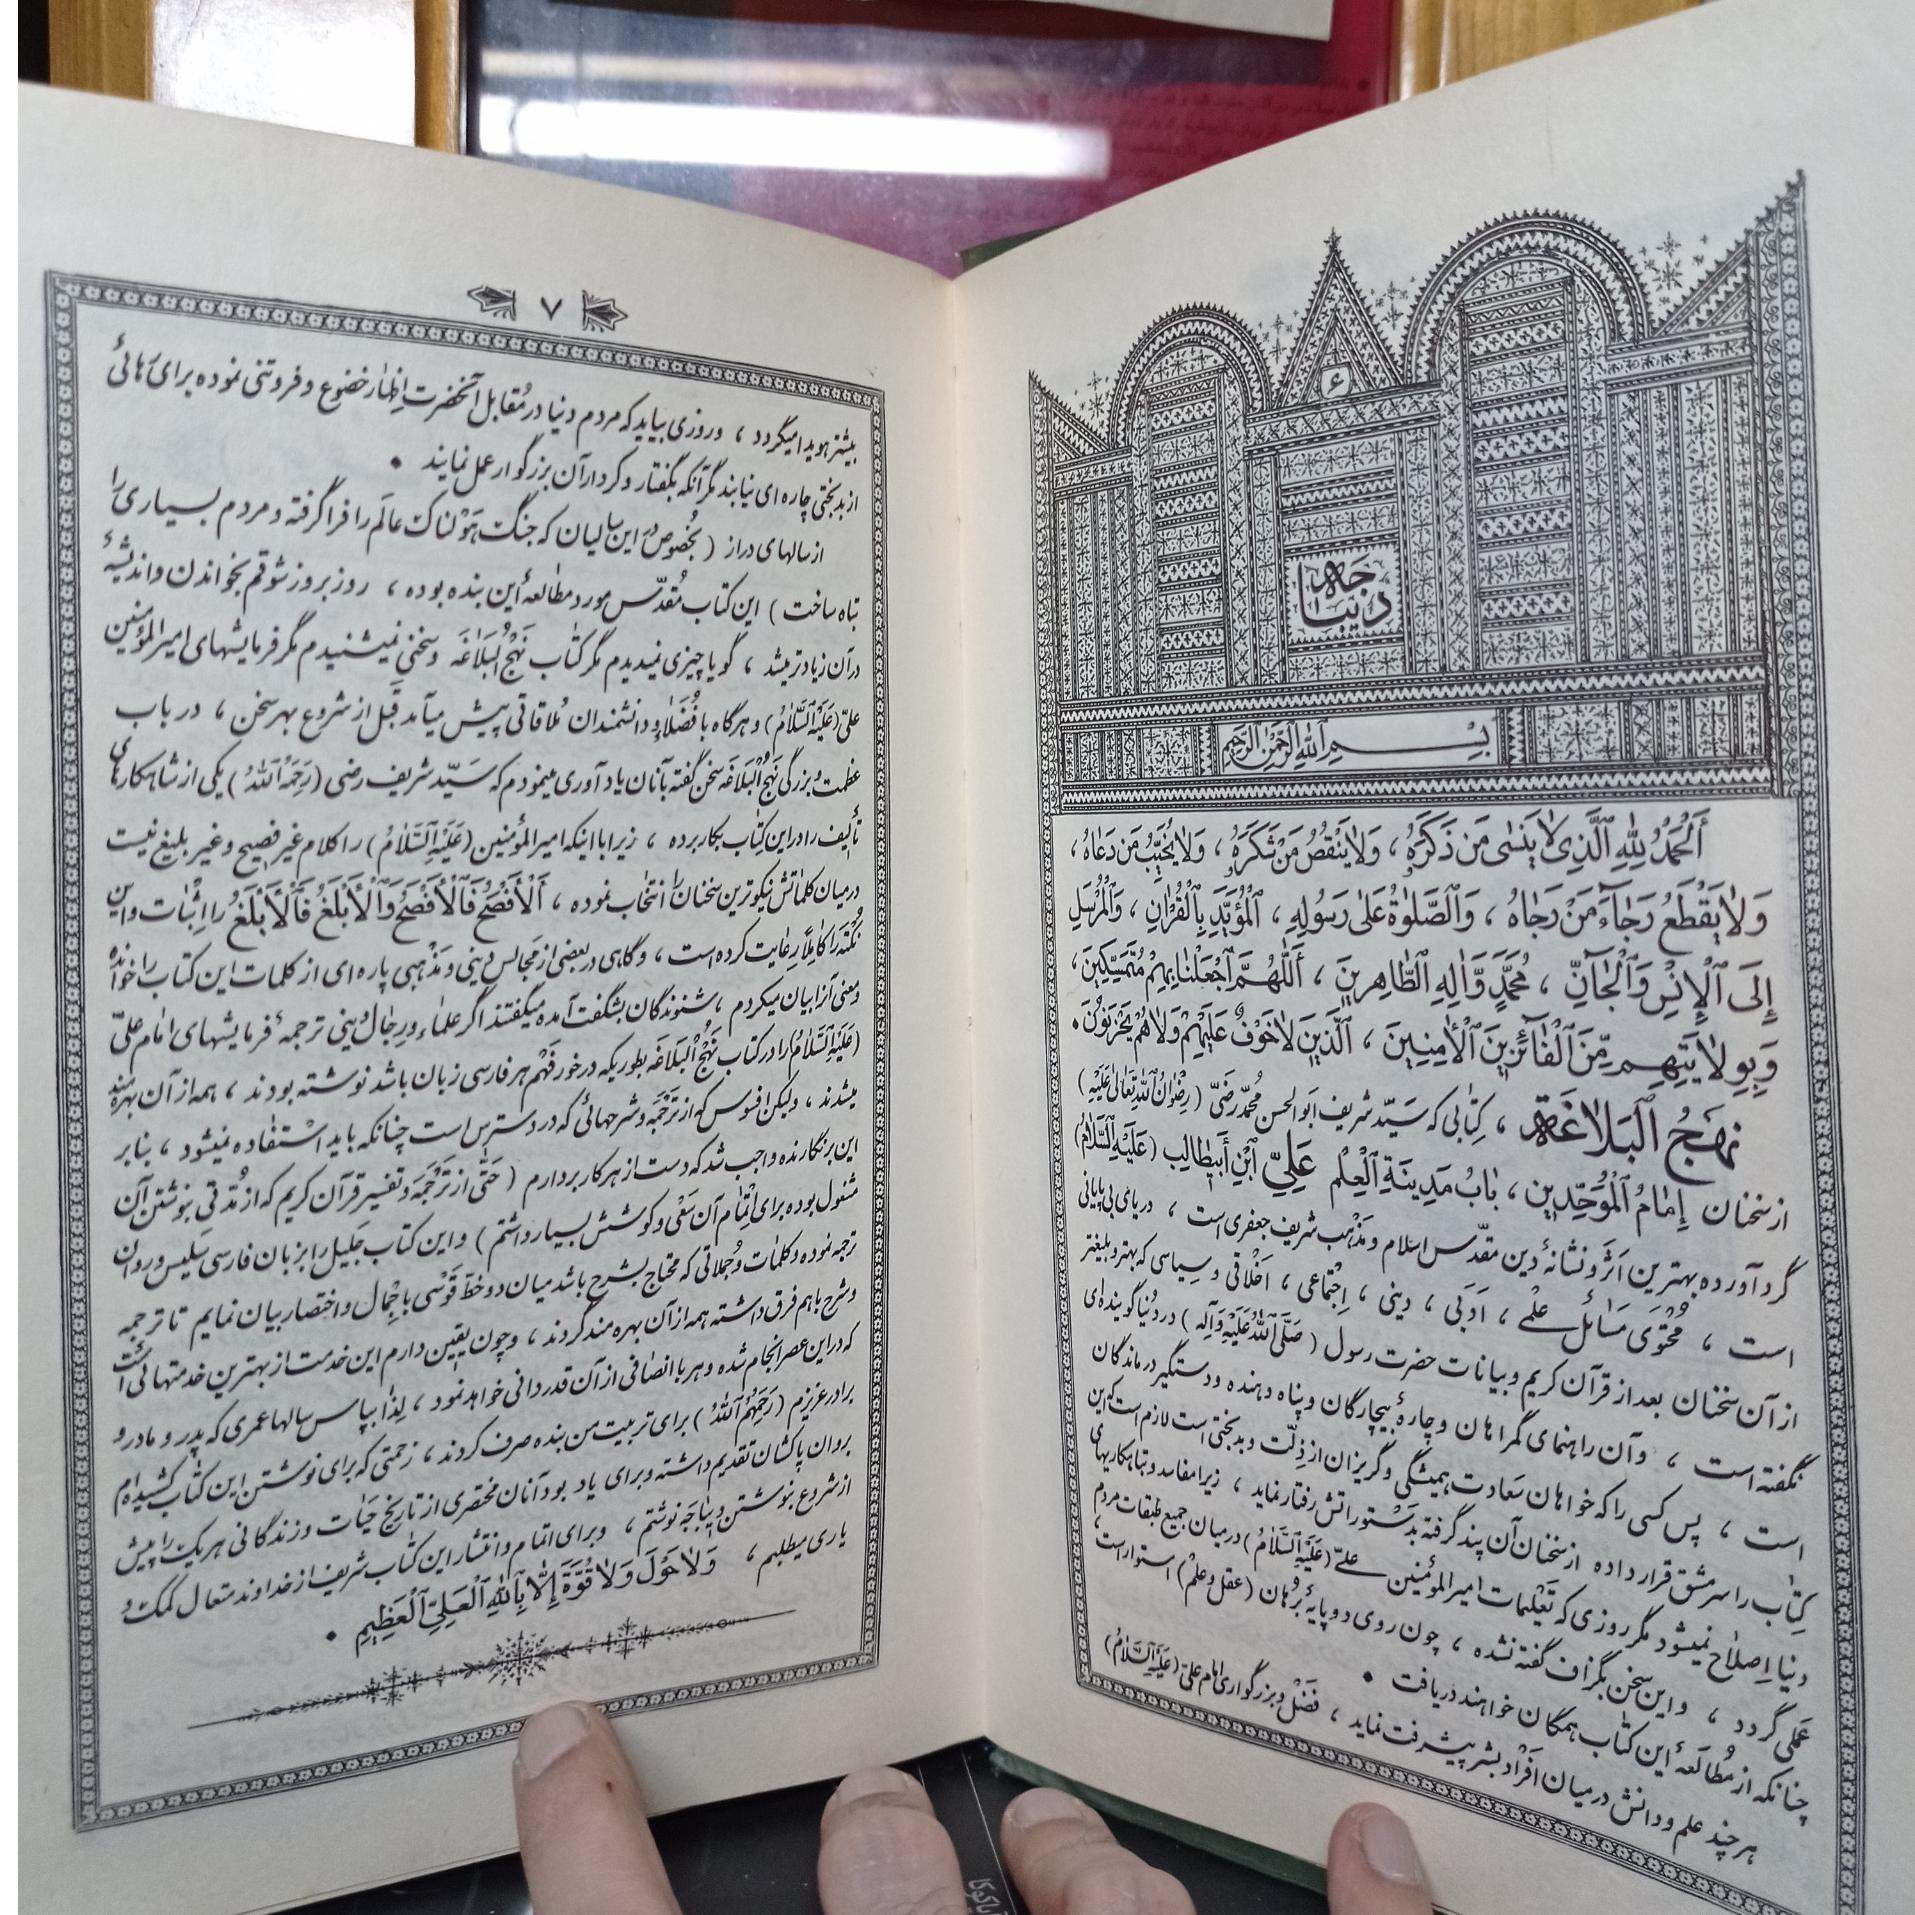 ۶
دیباجه
بِسْمِ ٱللّٰهِ ٱلرَّحْمٰنِ ٱلرَّحِیمِ
أَلْحَمْدُ لِلّٰهِ ٱلَّذِی لاٰ یَنْسٰی مَن ذَکَرَهُ ، وَلاٰ یَنْقُصُ مَنْ شَکَرَهُ ، وَلاٰ یُخَیِّبُ مَن دَعٰاهُ ،
وَلاٰ یَقْطَعُ رَجٰاءَ مَنْ رَجٰاهُ ، وَٱلصَّلٰوةُ عَلٰی رَسُولِهِ ، ٱلْمُؤَیَّدِ بِٱلْقُرْاٰنِ ، وَٱلْمُرْسَلِ
إِلَی ٱلْإِنْسِ وَٱلْجٰانِّ ، مُحَمَّدٍ وَّاٰلِهِ ٱلطّٰاهِرِینَ ، أَللّٰهُمَّ ٱجْعَلْنٰا بِهِمْ مُتَمَسِّکِینَ ،
وَبِوِلاٰیَتِهِم مِّنَ ٱلْفٰآئِزِینَ ٱلْأٰمِنِینَ ، ٱلَّذِینَ لاٰ خَوْفٌ عَلَیْهِمْ وَلاٰ هُمْ یَحْزَنُونَ .
نَهْجُ ٱلْبَلاٰغَة ، کِتٰابی که سَیّد شریف ابوالحسن مُحمّد رَضیّ (رِضْوٰانُ ٱللّٰهِ تَعٰالیٰ عَلَیْهِ)
از سخنان إِمٰامُ ٱلْمُوَحِّدِین ، بٰابُ مَدِینَةِ ٱلْعِلْم عَلِیِّ ٱبْنِ أَبِیطٰالِب (عَلَیْهِ ٱلسَّلاٰمُ)
گرد آورده بهترین اَثَر و نشانهٔ دین مقدّس اسلام و مَذْهب شریف جعفری است ، دریای بی پایانی
است ، مُحْتَوی مَسٰائل عِلْمی ، اَدَبی ، دینی ، اِجْتماعی ، اَخْلاقی و سیاسی که بهتر و بلیغتر
از آن سخنان بعد از قرآن کریم و بیانات حضرت رسول (صَلَّی ٱللّٰهُ عَلَیْهِ وَآلِه) در دُنیا گوینده‌ای
نگفته است ، و آن راهنمای گمراهان و چارهٔ بیچارگان و پناه دهنده و دستگیر درماندگان
است ، پس کسی را که خواهان سَعادت همیشگی و گریزان از ذِلّت و بدبختی است لازم است که این
کِتٰاب را سرمشق قرار داده از سخنان آن پند گرفته بدَسْتوراتش رفتار نماید ، زیرا مفاسد و تباهکاریهای
دنیا اِصلاٰح نمیشود مگر روزی که تَعْلیمات امیرالمؤمنین علیّ (عَلَیْهِ ٱلسَّلاٰمُ) در میان جمیع طبقات مردم
عَملی گردد ، و این سخن بگزاف گفته نشده ، چون روی دو پایهٔ بُرْهان (عقل و علم) استوار است ،
چنانکه از مُطٰالعهٔ این کتٰاب همگان خواهند دریافت .
هر چند علم و دانش در میان اَفْراد بشر پیشرفت نماید ، فَضْل و بزرگواری امام علیّ (عَلَیْهِ ٱلسَّلاٰمُ)
۷
بیشتر هویدا میگردد ، و روزی بیاید که مردم دنیا در مُقابل آنحضرت اِظْهٰار خضوع و فروتنی نموده برای رَهٰائی
از بدبختی چاره‌ای نیابند مگر آنکه بگفتار و کردار آن بزرگوار عمل نمایند .
از سالهای دراز (بخُصوص در این سالیان که جنگ هَوْلناک عالَم را فرا گرفته و مردم بسیاری را
تباه ساخت) این کتاب مُقدّس مورد مطٰالعهٔ این بنده بوده ، روز بروز شوقم بخواندن و اندیشهٔ
در آن زیادتر میشد ، گویا چیزی نمیدیدم مگر کتٰاب نَهْجُ ٱلْبَلاٰغَه و سخنی نمیشنیدم مگر فرمایشهای امیرالمؤمنین
علیّ (عَلَیْهِ ٱلسَّلاٰمُ) و هر گاه با فُضَلاٰء و دانشمندان مُلاقاتی پیش میآمد قَبل از شروع بهر سخن ، در باب
عظمت و بزرگی نَهْجُ ٱلْبَلاٰغَه سخن گفته بآنان یادآوری مینمودم که سَیّد شریف رضی (رَحِمَهُ ٱللّٰهُ) یکی از شاهکارهای
تألیف را در این کتٰاب بکار برده ، زیرا با اینکه امیرالمؤمنین (عَلَیْهِ ٱلسَّلاٰمُ) را کلام غیر فصیح و غیر بلیغ نیست
در میان کلماتش نیکوترین سخنان را انتخاب نموده ، أَلْأَفْصَحُ فَٱلْأَفْصَحُ وَٱلْأَبْلَغُ فَٱلْأَبْلَغُ را اِثْبٰات و این
نُکْتَه را کٰامِلاً رِعٰایت کرده است ، و گاهی در بعضی از مَجٰالس دینی و مَذْهبی پاره‌ای از کلمات این کتاب را خوانده
و معنی آنرا بیان میکردم ، شنوندگان بشگفت آمده میگفتند اگر علمٰاء و رِجٰال دینی ترجمهٔ فرمایشهای امٰام علیّ
(عَلَیْهِ ٱلسَّلاٰمُ) را در کتاب نَهْجُ ٱلْبَلاٰغَه بطوریکه در خور فَهْم هر فارسی زبان باشد نوشته بودند ، همه از آن بهره‌مند
میشدند ، ولیکن افسوس که از ترْجَمَه و شرحهائی که در دسترس است چنانکه باید اسْتفٰاده نمیشود ، بنابر
این بر نگارنده واجب شد که دست از هر کار بردارم (حَتّٰی از ترْجَمَه و تفسیر قرآن کریم که از مُدّتی بنوشتن آن
مشغول بوده برای اِتْمٰام آن سَعْی و کوشش بسیار داشتم) و این کتاب جَلیل را بزبان فارسی سَلیس و روان
ترجمه نموده و کلمات و جُملاتی که محتاج بشرح باشد میان دو خطّ قَوْسی با جْمال و اختصار بیان نمایم تا ترجمه
و شرح با هم فرق داشته همه از آن بهره‌مند گردند ، و چون یقین دارم این خدمت از بهترین خدمتهائی است
که در این عصر انجام شده و هر با انصافی از آن قدردانی خواهد نمود ، لِذٰا بپاس سالها عمری که پدر و مادر و
برادر عزیزم (رَحِمَهُمُ ٱللّٰهُ) برای تربیت من بنده صرف کردند ، زحمتی که برای نوشتن این کتٰاب کشیده‌ام
بروان پاکشان تقدیم داشته و برای یاد بود آنان مختصری از تاریخ حَیٰات و زندگانی هر یک را پیش
از شروع بنوشتن دیبٰاجَه نوشتم ، و برای اتمام و انتشار این کتٰاب شریف از خداوند متعال کمک و
یاری میطلبم ، وَلاٰ حَوْلَ وَلاٰ قُوَّةَ إِلاّٰ بِٱللّٰهِ ٱلْعَلِیِّ ٱلْعَظِیمِ .